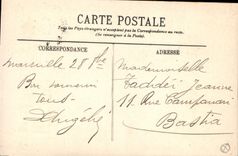 CARTE POSTALE
Tous les Pays étrangers n'acceptent pas la Correspondance au recto.
(Se renseigner à la Poste).
CORRESPONDANCE
ADRESSE
Marseille 28
Bon souvenir
Tous
Mademoiselle
Jeanne
11 Rue
Bastia